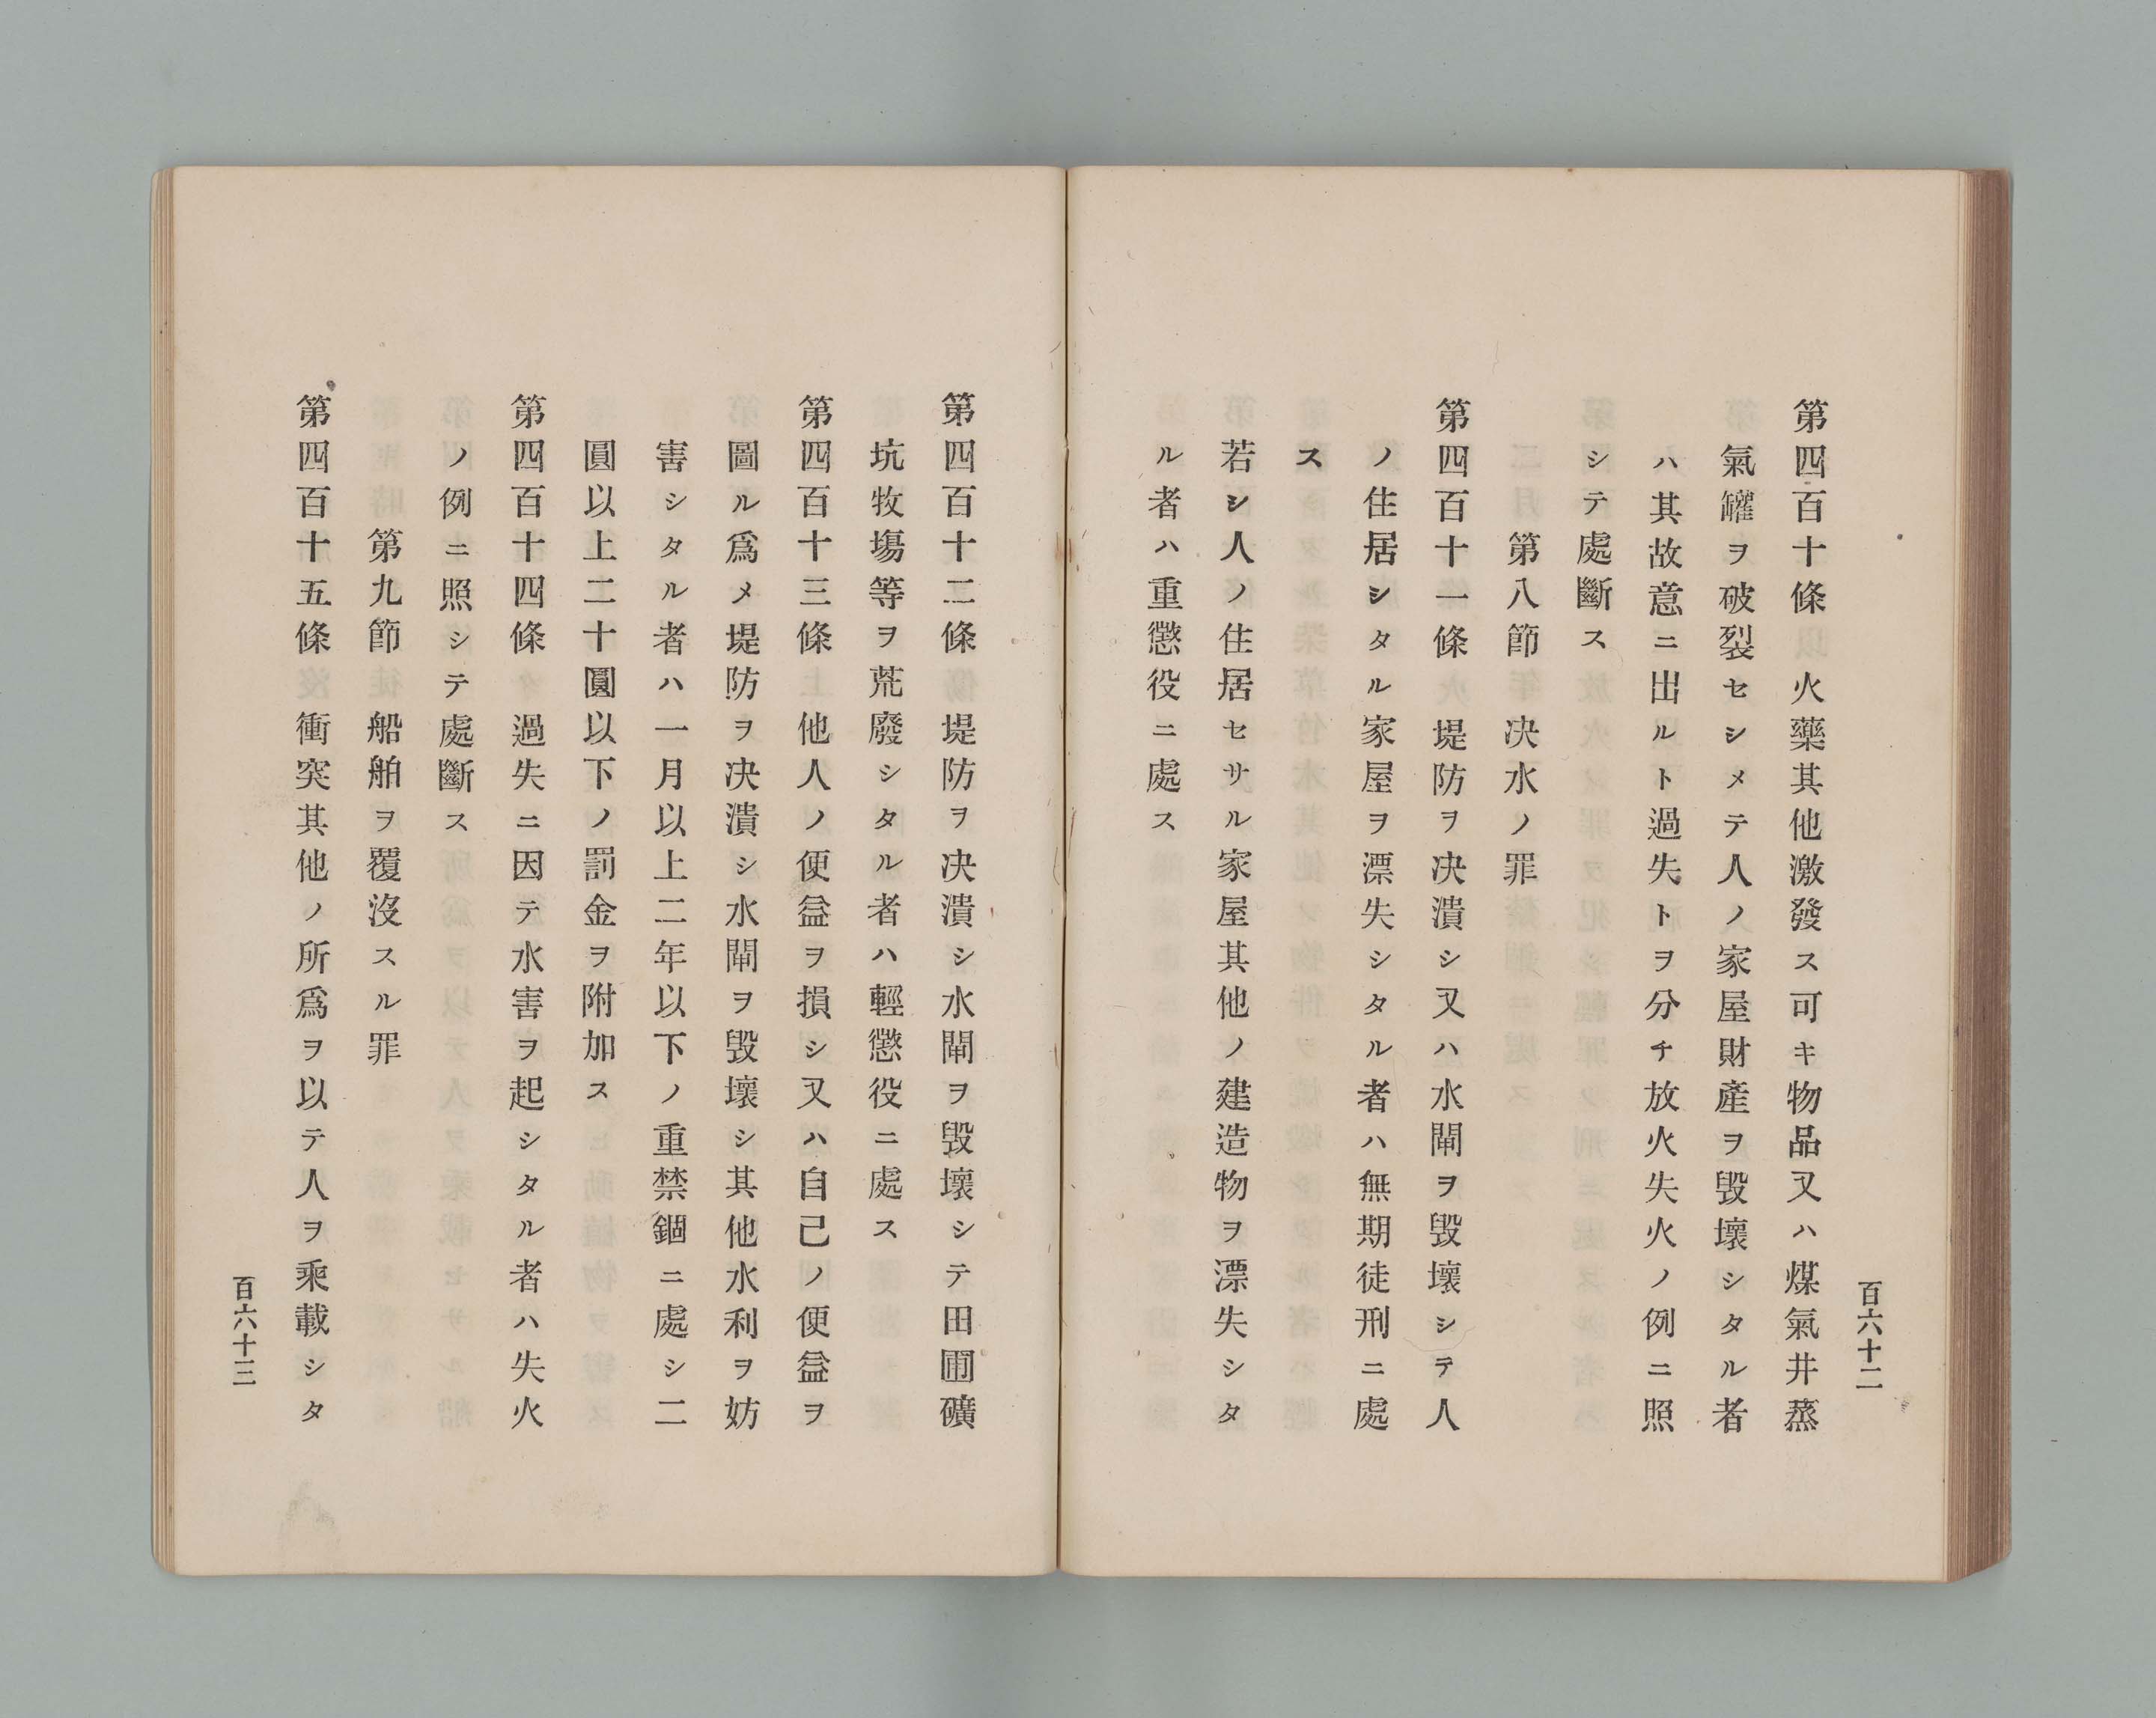 百六十二
第四百十條　火藥其他激發ス可キ物品又ハ煤氣井蒸
氣罐ヲ破裂セシメテ人ノ家屋財產ヲ毀壞シタル者
ハ其故意ニ出ルト過失トヲ分チ放火失火ノ例ニ照
シテ處斷ス
第八節　决水ノ罪
第四百十一條　堤防ヲ决潰シ又ハ水閘ヲ毀壞シテ人
ノ住居シタル家屋ヲ漂失シタル者ハ無期徒刑ニ處
ス
若シ人ノ住居セサル家屋其他ノ建造物ヲ漂失シタ
ル者ハ重懲役ニ處ス
第四百十二條　堤防ヲ决潰シ水閘ヲ毀壞シテ田圃礦
坑牧塲等ヲ荒廢シタル者ハ輕懲役ニ處ス
第四百十三條　他人ノ便益ヲ損シ又ハ自己ノ便益ヲ
圖ル爲メ堤防ヲ决潰シ水閘ヲ毀壞シ其他水利ヲ妨
害シタル者ハ一月以上二年以下ノ重禁錮ニ處シ二
圓以上二十圓以下ノ罰金ヲ附加ス
第四百十四條　過失ニ因テ水害ヲ起シタル者ハ失火
ノ例ニ照シテ處斷ス
第九節　船舶ヲ覆沒スル罪
第四百十五條　衝突其他ノ所爲ヲ以テ人ヲ乘載シタ
百六十三